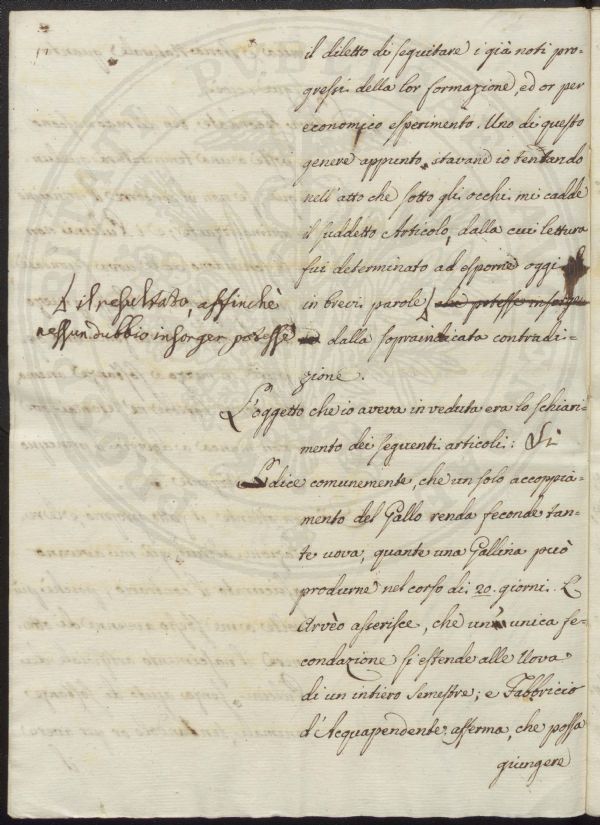 il diletto di seguitare i già noti pro-
gressi della lor formazione, ed or per
economico esperimento. Uno di questo
genere appunto stavane io tentando
nell'atto che sotto gli occhi mi cadde
il suddetto Articolo, dalla cui lettura
fui determinato ad esporne oggi
in brevi parole che potesse insorger
il resultato, affinchè
nessun dubbio insorger potesse
dalla sopraindicata contradi-
zione.
L'oggetto che io aveva in veduta era lo schiari-
mento dei seguenti articoli: Si
dice comunemente, che un solo accoppia-
mento del Gallo renda feconde tan-
te uova, quante una Gallina può
produrne nel corso di 20. giorni. L'
Arvèo asserisce, che un'unica fe-
condazione si estende alle Uova
di un intiero Semestre; e Fabbricio
d'Acquapendente afferma, che possa
giungere